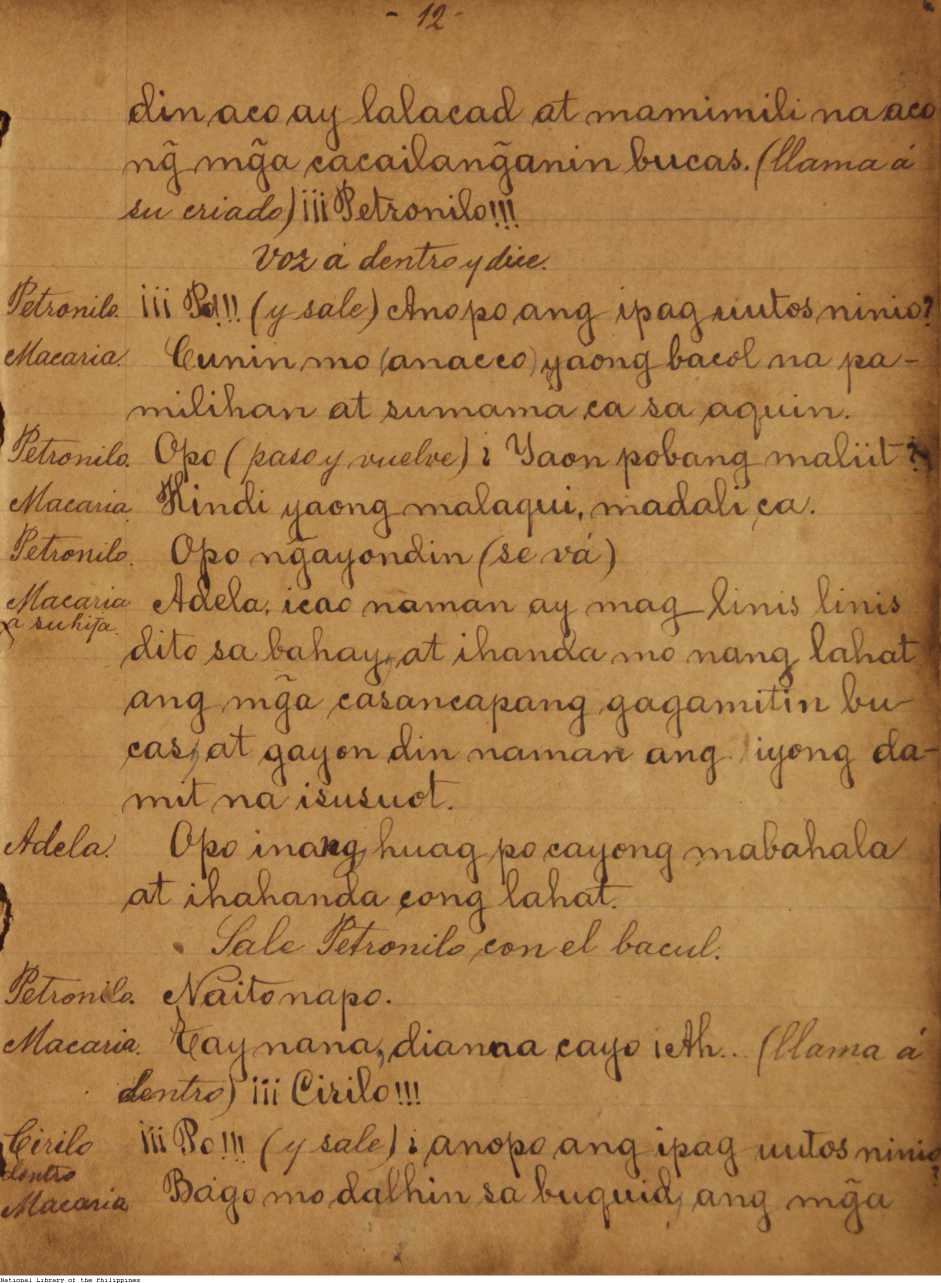 - 12 -
din aco ay lalacad at mamimili na aco
ng̃ mg̃a cacailang̃anin bucas. (llama á
su criado) ¡¡¡Petronilo!!!
Voz á dentro y dice.
Petronilo. ¡¡¡Po!!! (y sale) Ano po ang ipag uutos ninio?
Macaria. Cunin mo (anacco) yaong bacol na pa-
milihan at sumama ca sa aquin.
Petronilo. Opo (paso y vuelve) ¿Yaon pobang maliit?
Macaria. Hindi yaong malaqui, madali ca.
Petronilo. Opo ng̃ayondin (se vá)
Macaria a su hija. Adela, icao naman ay mag linis linis
dito sa bahay, at ihanda mo nang lahat
ang mg̃a casancapang gagamitin bu-
cas, at gayon din naman ang iyong da-
mit na isusuot.
Adela. Opo inang, huag po cayong mabahala
at ihahanda cong lahat.
Sale Petronilo, con el bacul.
Petronilo. Naito napo.
Macaria. Tay nana, dianaa cayo ¡Ah.. (llama á
dentro) ¡¡¡Cirilo!!!
Cirilo dentro ¡¡¡Po!!! (y sale) ¿anopo ang ipag uutos ninio?
Macaria Bago mo dalhin sa buquid, ang mg̃a
National Library of the Philippines